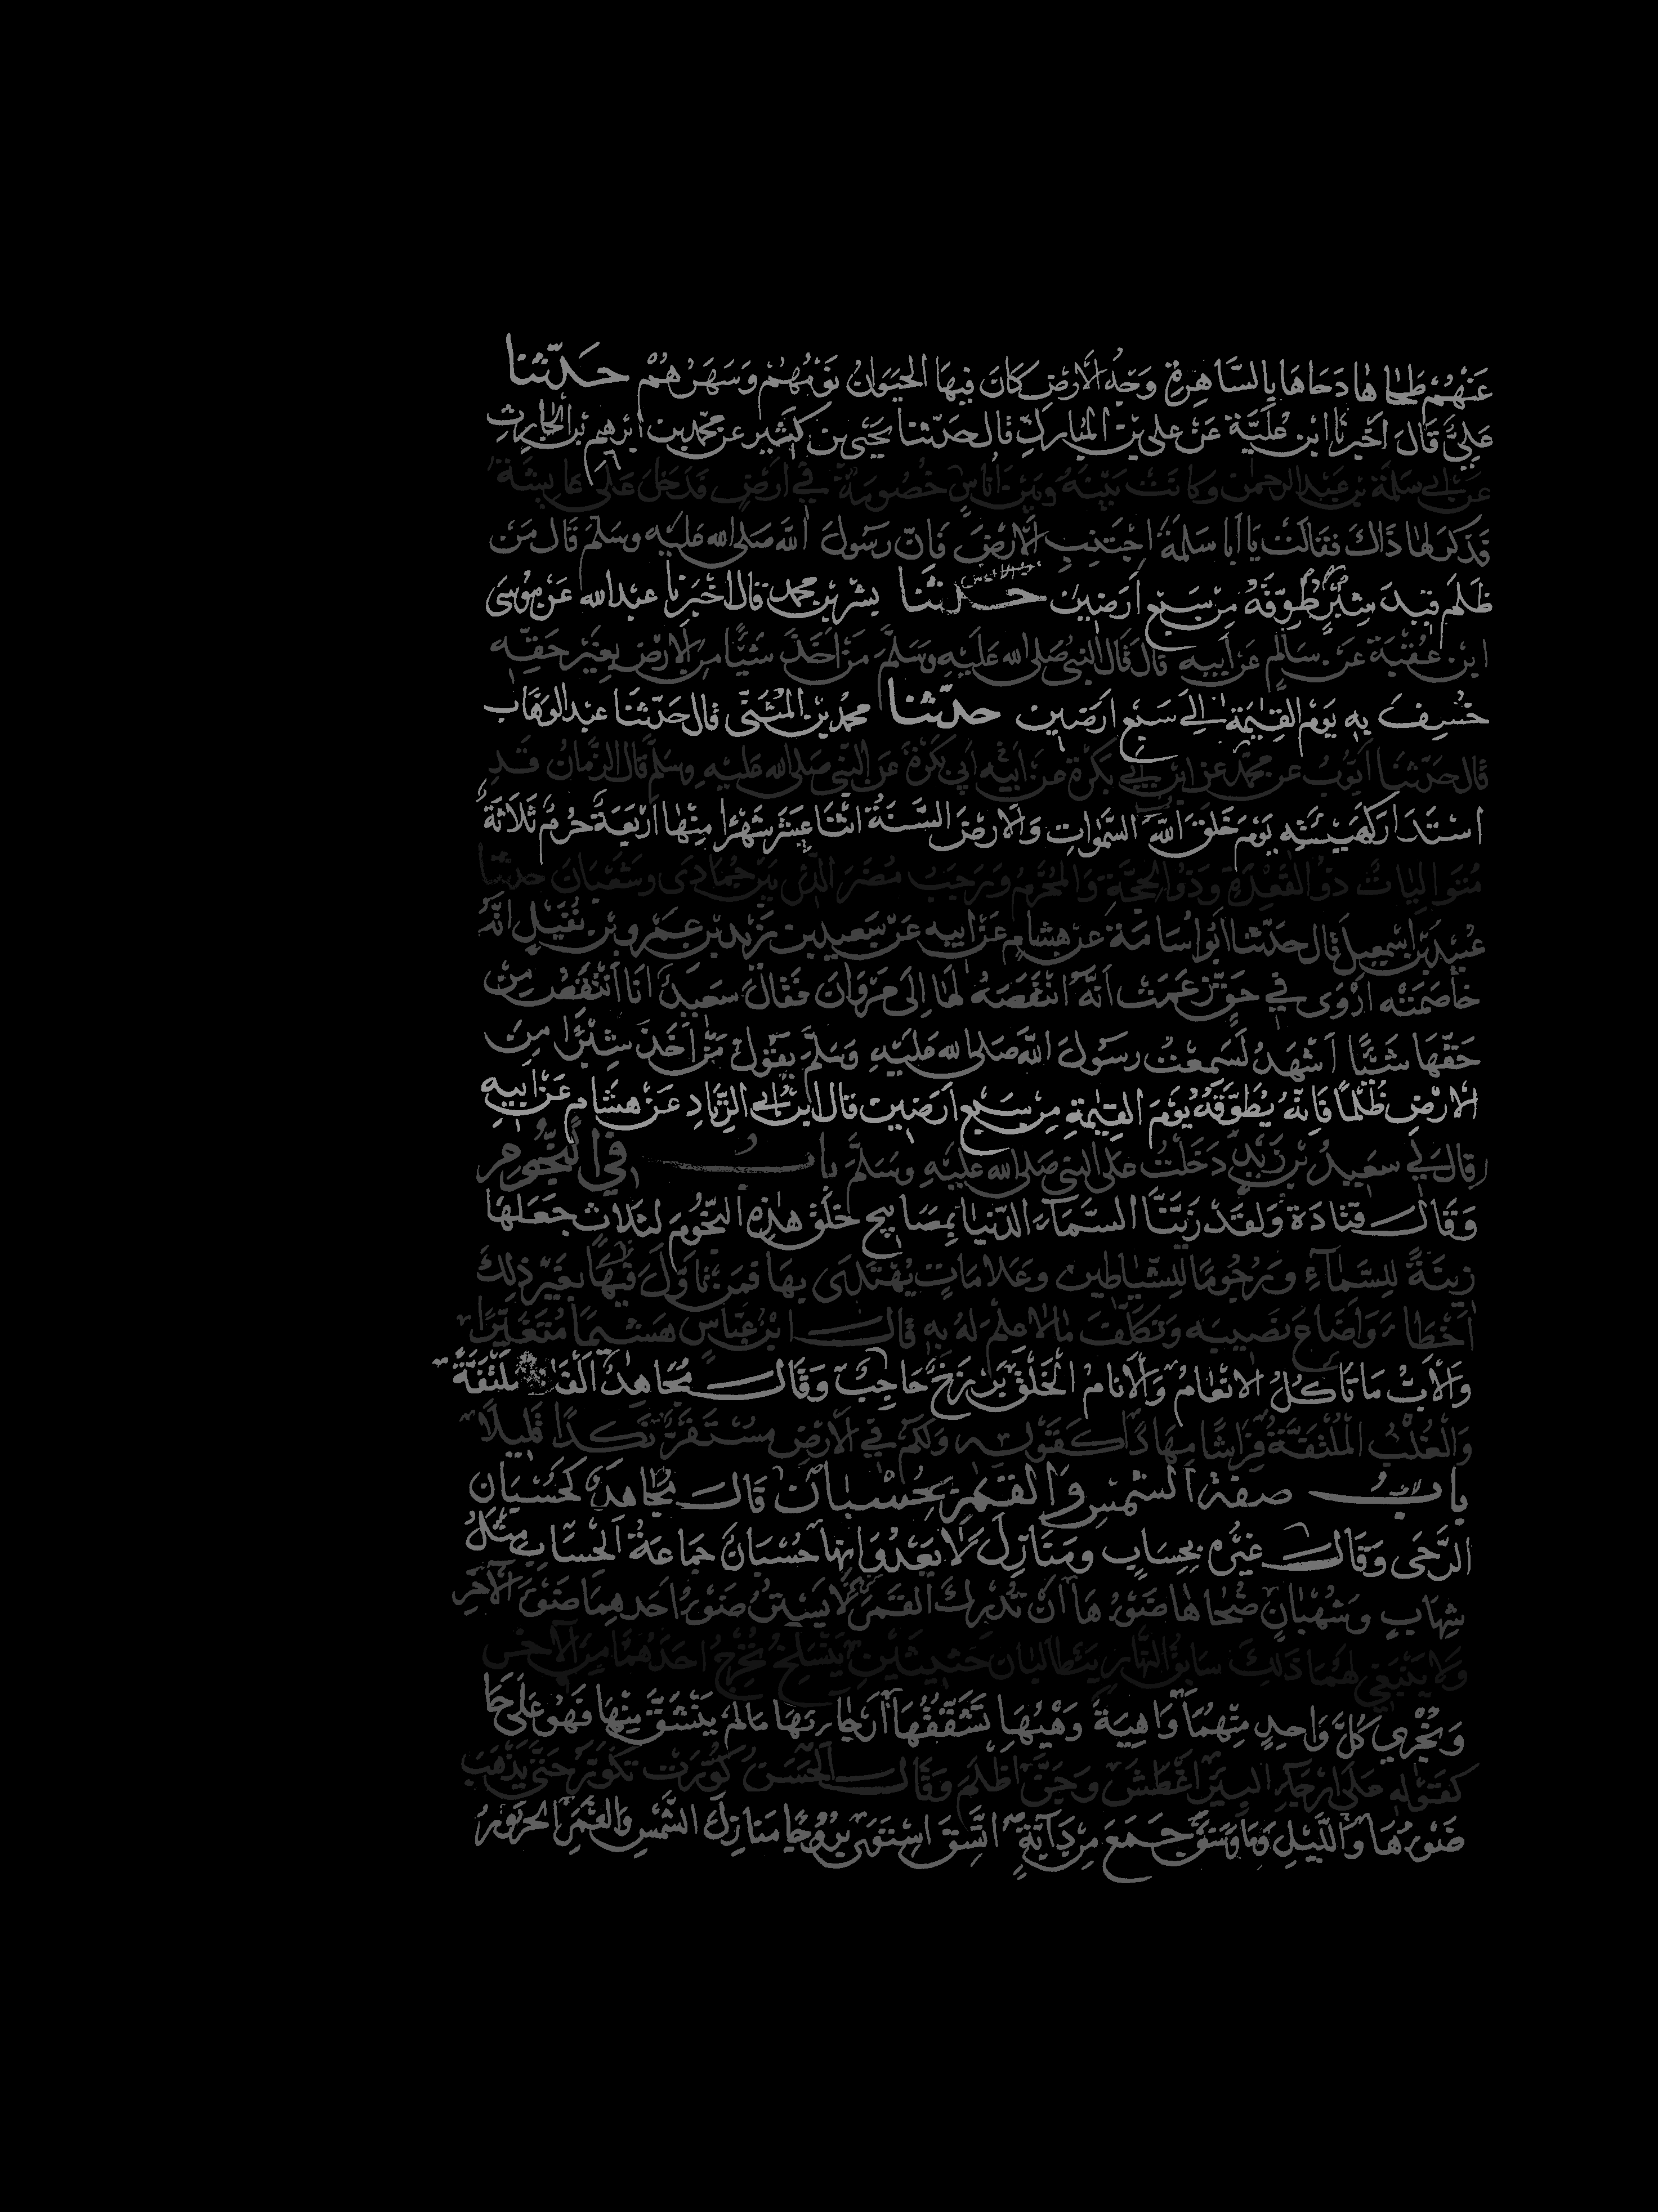 عَنْهُمْ طَحَاهَا دَحَاهَا بِالسَّاهِرَةِ وَجْهُ الْأَرْضِ كَانَ فِيهَا الْحَيَوَانُ نَوْمُهُمْ وَسَهَرُهُمْ حَدَّثَنَا
عَلِيٌّ قَالَ أَخْبَرَنَا ابْنُ عُلَيَّةَ عَنْ عَلِيِّ بْنِ الْمُبَارَكِ قَالَ حَدَّثَنَا يَحْيَى بْنُ كَثِيرٍ عَنْ مُحَمَّدِ بْنِ إِبْرَهِيمَ بْنِ الْحَارِثِ
عَنْ أَبِي سَلَمَةَ بْنِ عَبْدِ الرَّحْمٰنِ وَكَانَتْ بَيْنَهُ وَبَيْنَ أُنَاسٍ خُصُومَةٌ فِي أَرْضٍ فَدَخَلَ عَلَى عَايِشَةَ
فَذَكَرَ لَهَا ذَاكَ فَقَالَتْ يَا أَبَا سَلَمَةَ اجْتَنِبِ الْأَرْضَ فَإِنَّ رَسُولَ اللَّهِ صَلَى اللَّه عَلَيْهِ وَسَلَّمَ قَالَ مَنْ
ظَلَمَ قِيدَ شِبْرٍ طُوِّقَهُ مِنْ سَبْعِ أَرَضِينَ حَدَّثَنَا بِشْرُ بْنُ مُحَمَّدٍ قَالَ أَخْبَرَنَا عَبْدُ اللَّهِ عَنْ مُوسَى
ابْنِ عُقْبَةَ عَنْ سَالِمٍ عَنْ أَبِيهِ قَالَ قَالَ النَّبِيُّ صَلَى اللَّه عَلَيْهِ وَسَلَّمَ مَنْ أَخَذَ شَيْئًا مِنَ الْأَرْضِ بِغَيْرِ حَقِّهِ
خُسِفَ بِهِ يَوْمَ الْقِيٰمَةِ إِلَى سَبْعِ أَرَضِينَ حدَّثنا مُحَمَّدُ بْنُ الْمُثَنَّى قَالَ حَدَّثَنَا عَبْدُ الْوَهَّابِ
قَالَ حَدَّثَنَا أَيُّوبُ عَنْ مُحَمَّدٍ عَنِ ابْنِ أَبِي بَكْرَةَ عَنْ أَبِيهِ أَبِي بَكْرَةَ عَنِ النَّبِيِّ صَلَى اللَّه عَلَيْهِ وَسَلَّمَ قَالَ الزَّمَانُ قَدِ
اسْتَدَارَ كَهَيْئَتِهِ يَوْمَ خَلَقَ اللَّهُ السَّمٰوَاتِ وَالْأَرْضَ السَّنَةُ اثْنَا عَشَرَ شَهْرًا مِنْهَا أَرْبَعَةٌ حُرُمٌ ثَلَاثَةٌ
مُتَوَالِيَاتٌ ذُو الْقَعْدَةِ وَذُو الْحِجَّةِ وَالْمُحَرَّمُ وَرَجَبُ مُضَرَ الَّذِي بَيْنَ جُمَادَى وَشَعْبَانَ حدثنا
عُبَيْدُ بْنُ إِسْمٰعِيلَ قَالَ حَدَّثَنَا أَبُو أُسَامَةَ عَنْ هِشَامٍ عَنْ أَبِيهِ عَنْ سَعِيدِ بْنِ زَيْدِ بْنِ عَمْرِو بْنِ نُفَيْلٍ أَنَّهُ
خَاصَمَتْهُ أَرْوَى فِي حَقٍّ زَعَمَتْ أَنَّهُ انْتَقَصَهُ لَهَا إِلَى مَرْوَانَ فَقَالَ سَعِيدٌ أَنَا أَنْتَقِصُ مِنْ
حَقِّهَا شَيْئًا أَشْهَدُ لَسَمِعْتُ رَسُولَ اللَّهِ صَلَى اللَّه عَلَيْهِ وَسَلَّمَ يَقُولُ مَنْ أَخَذَ شِبْرًا مِنَ
الْأَرْضِ ظُلْمًا فَإِنَّهُ يُطَوَّقَهُ يَوْمَ الْقِيٰمَةِ مِنْ سَبْعِ أَرَضِينَ قَالَ ابْنُ أَبِي الزِّنَادِ عَنْ هِشَامٍ عَنْ أَبِيهِ
قَالَ لِي سَعِيدُ بْنُ زَيْدٍ دَخَلْتُ عَلَى النَّبِيِّ صَلَى اللَّه عَلَيْهِ وَسَلَّمَ بَابُ فِي النُّجُومِ
وَقَالَ قَتَادَةُ وَلَقَدْ زَيَّنَّا السَّمَآءَ الدُّنْيَا بِمَصَابِيحَ خَلَقَ هٰذِهِ النُّجُومَ لِثَلَاثٍ جَعَلَهَا
زِينَةً لِلسَّمَآءِ وَرُجُومًا لِلشَّيَاطِينِ وَعَلَامَاتٍ يُهْتَدَى بِهَا فَمَنْ تَأَوَّلَ فِيهَا بِغَيْرِ ذَلِكَ
أَخْطَأَ وَأَضَاعَ نَصِيبَهُ وَتَكَلَّفَ مَا لَا عِلْمَ لَهُ بِهِ قَالَ ابْنُ عَبَّاسٍ هَشِيمًا مُتَغَيِّرًا
وَالْأَبُّ مَا تَأْكُلُ الْأَنْعَامُ وَالْأَنَامُ الْخَلْقُ بَرْزَخٌ حَاجِبٌ وَقَالَ مُجَاهِدٌ أَلْفَافًا مُلْتَفَّةً
وَالْغُلْبُ الْمُلْتَفَّةُ فِرَاشًا مِهَادًا كَقَوْلِهِ وَلَكُمْ فِي الْأَرْضِ مُسْتَقَرٌّ نَكِدًا قَلِيلًا
بَابُ صِفَةِ الشَّمْسِ وَالْقَمَرِ بِحُسْبَانٍ قَالَ مُجَاهِدٌ كَحُسْبَانِ
الرَّحَى وَقَالَ غَيْرُهُ بِحِسَابٍ وَمَنَازِلَ لَا يَعْدُوَانِهَا حُسْبَانٌ جَمَاعَةُ الْحِسَابِ مِثْلُ
شِهَابٍ وَشُهْبَانٍ ضُحَاهَا ضَوْؤُهَا أَنْ تُدْرِكَ الْقَمَرَ لَا يَسْتُرُ ضَوْءُ أَحَدِهِمَا ضَوْءَ الْآخَرِ
وَلَا يَنْبَغِي لَهُمَا ذَلِكَ سَابِقُ النَّهَارِ يَتَطَالَبَانِ حَثِيثَيْنِ يَنْسَلِخُ يُخْرِجُ أَحَدَهُمَا مِنَ الْآخَرِ
وَيُجْرِي كُلَّ وَاحِدٍ مِنْهُمَا وَاهِيَةٌ وَهْيُهَا تَشَقُّقُهَا أَرْجَائِهَا مَا لَمْ يَنْشَقَّ مِنْهَا فَهُوَ عَلَى حَا
كَقَوْلِهِ عَلَى أَرْجَاءِ الْبِيرِ أَغْطَشَ وَجَنَّ أَظْلَمَ وَقَالَ الْحَسَنُ كُوِّرَتْ تُكَوَّرُ حَتَّى يَذْهَبَ
ضَوْؤُهَا وَاللَّيْلِ وَمَا وَسَقَ جَمَعَ مِنْ دَآبَّةٍ اتَّسَقَ اسْتَوَى بُرُوجًا مَنَازِلَ الشَّمْسِ وَالْقَمَرِ الْحَرُورُ